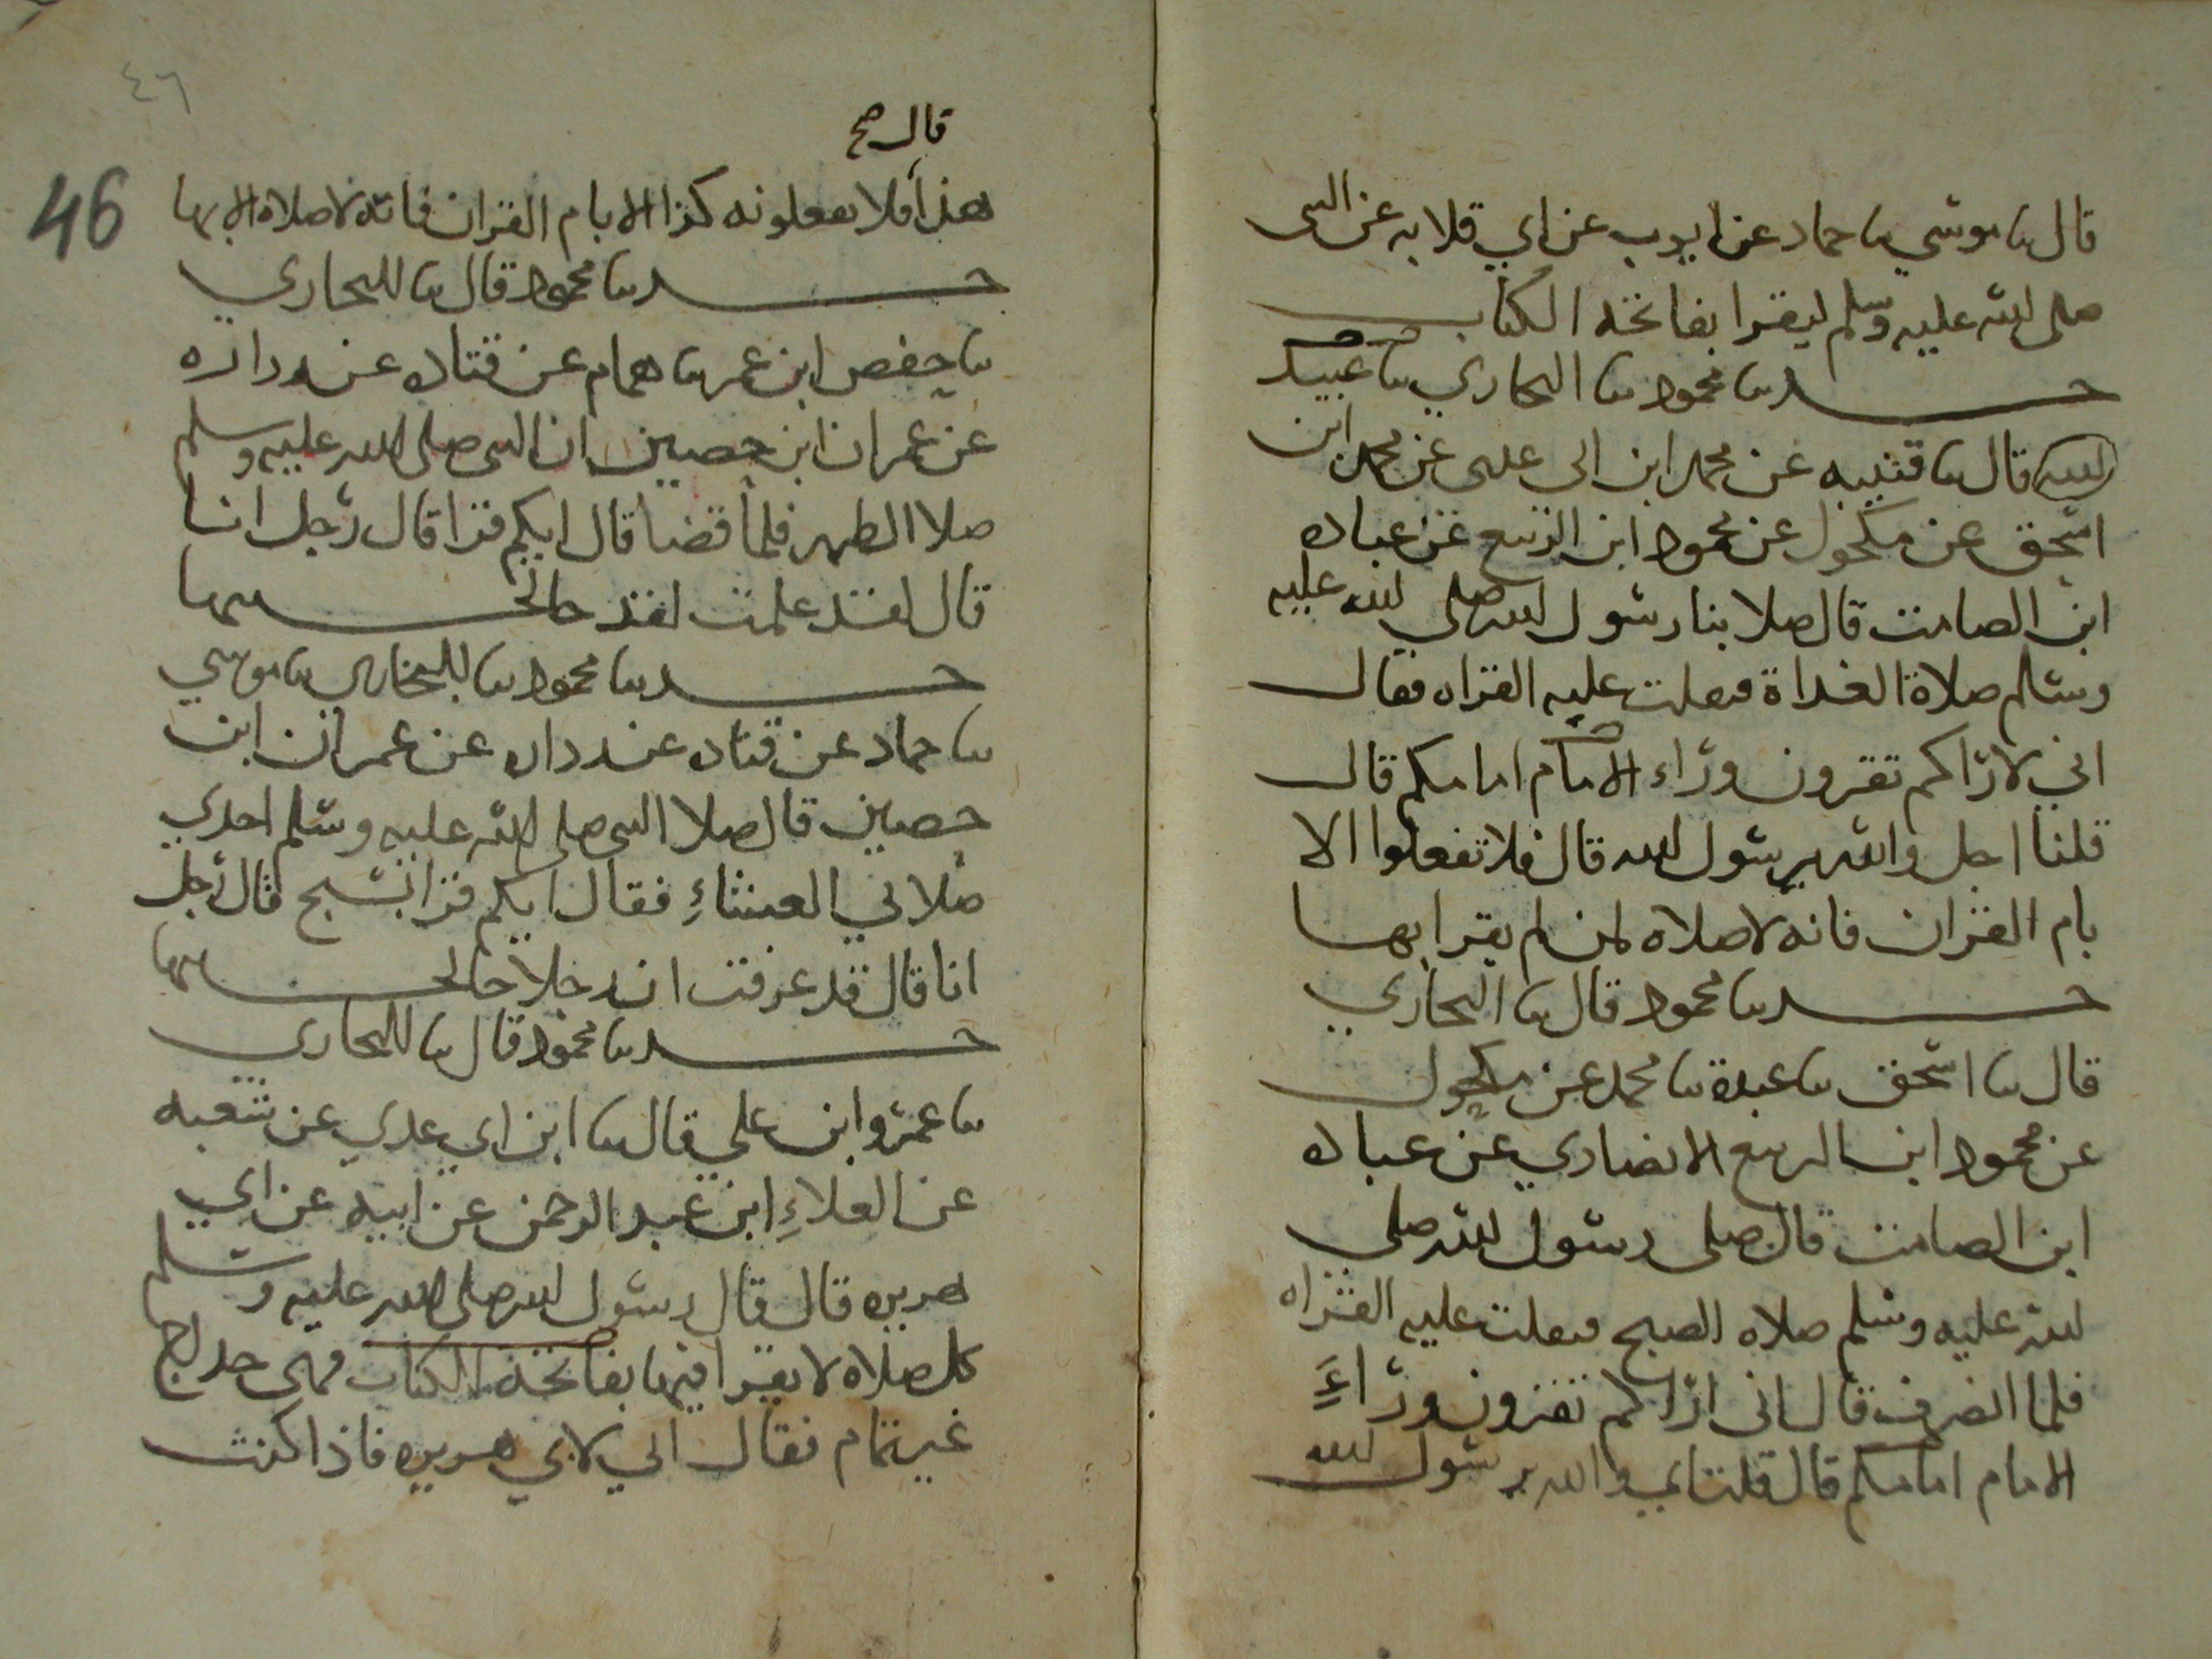 قال ثنا موسي ثنا حماد عن ايوب عن ابي قلابه عن النبي
صلى الله عليه وسلم ليقرا بفاتحة الكتاب
حدثنا محمود ثنا البخاري ثنا عبيد
الله قال ثنا قتيبه عن محمد ابن ابي عدى عن محمد ابن
اسحق عن مكحول عن محمود ابن الربيع عن عباده
ابن الصامت قال صلا بنا رسول الله صلي الله عليه
وسلم صلاة الغداة فتقلت عليه القراه فقال
اني لاراكم تقرون وراء الامام امامكم قال
قلنا اجل والله يرسول الله قال فلا تفعلوا الا
بام القران فانه لا صلاه لمن لم يقرا بها
حدثنا محمود قال ثنا البخاري
قال ثنا اسحق ثنا عبدة ثنا محمد عن مكحول
عن محمود ابن الربيع الانصاري عن عباده
ابن الصامت قال صلى رسول الله صلي
الله عليه وسلم صلاه الصبح فتقلت عليه القراه
فلما انصرف قال اني اراكم تقرون وراء
الامام امامكم قال قلنا اي والله يرسول الله
٤٦
46
قال صح
هذا فلا تفعلونه كذا الا بام القران فانه لا صلاة الا بها
حدثنا محمود قال ثنا البخاري
ثنا حفص ابن عمر ثنا همام عن قتاده عن زراره
عن عمران ابن حصين ان النبي صلى الله عليه وسلم
صلا الظهر فلما قضا قال ايكم قرا قال رجل انا
قال لقد علمت لقد خالجنيها
حدثنا محمود ثنا البخاري ثنا موسي
ثنا حماد عن قتاده عن زراره عن عمران ابن
حصين قال صلا النبي صلى الله عليه وسلم احدي
صلاتي العشاءِ فقال ايكم قرا بسبح قال رجل
انا قال قد عرفت ان رجلا خالجنيها
حدثنا محمود قال ثنا البخاري
ثنا عمرو ابن علي قال ثنا ابن ابي عدي عن شعبه
عن العلاءِ ابن عبد الرحمن عن ابيه عن ابي
هريره قال قال رسول الله صلى الله عليه وسلم
كل صلاه لا يقرا فيها بفاتحة الكتاب فهى خداج
غير تمام فقال ابي لابي هريره فاذا كنت